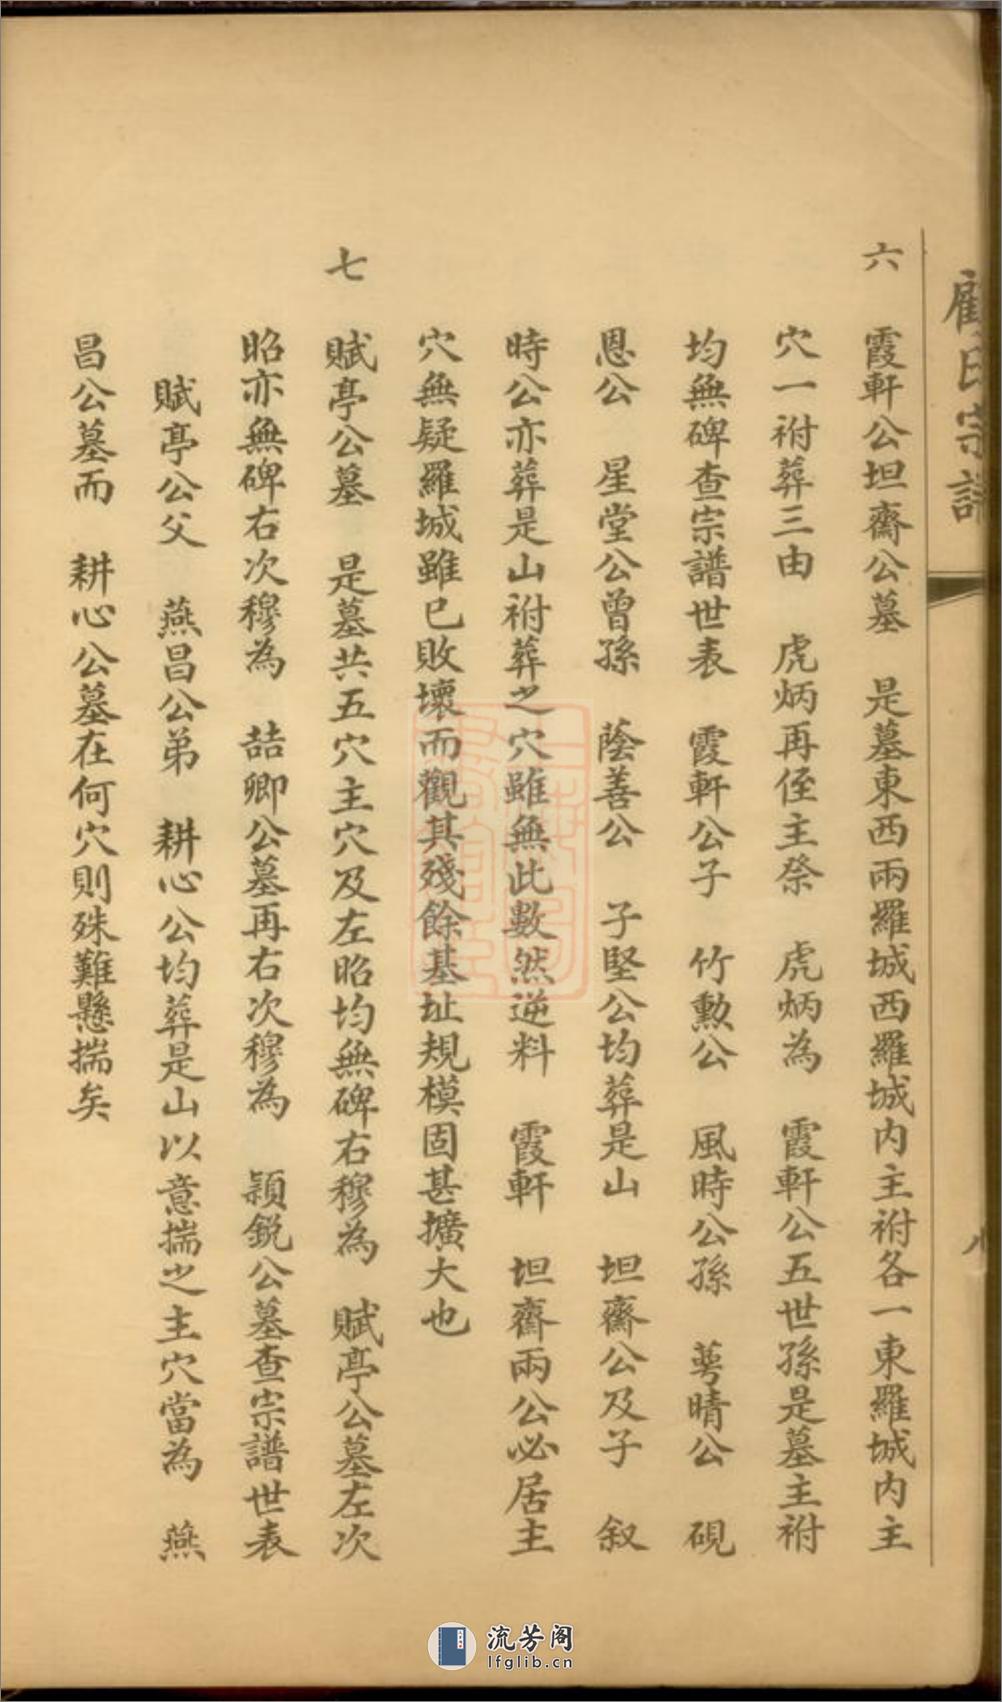 顧氏宗譜
六 霞軒公坦齋公墓 是墓東西兩羅城西羅城內主祔各一東羅城內主
穴一祔葬三由 虎炳再侄主祭 虎炳為 霞軒公五世孫是墓主祔
均無碑查宗譜世表 霞軒公子 竹勲公 風時公孫 蕚晴公 硯
恩公 星堂公曾孫 蔭善公 子堅公均葬是山 坦齋公及子 敘
時公亦葬是山祔葬之穴雖無此數然逆料 霞軒 坦齋兩公必居主
穴無疑羅城雖已敗壞而觀其殘餘基址規模固甚擴大也
七 賦亭公墓 是墓共五穴主穴及左昭均無碑右穆為 賦亭公墓左次
昭亦無碑右次穆為 喆卿公墓再右次穆為 穎銳公墓查宗譜世表
賦亭公父 燕昌公弟 耕心公均葬是山以意揣之主穴當為 燕
昌公墓而 耕心公墓在何穴則殊難懸揣矣
流芳阁
lfglib.cn